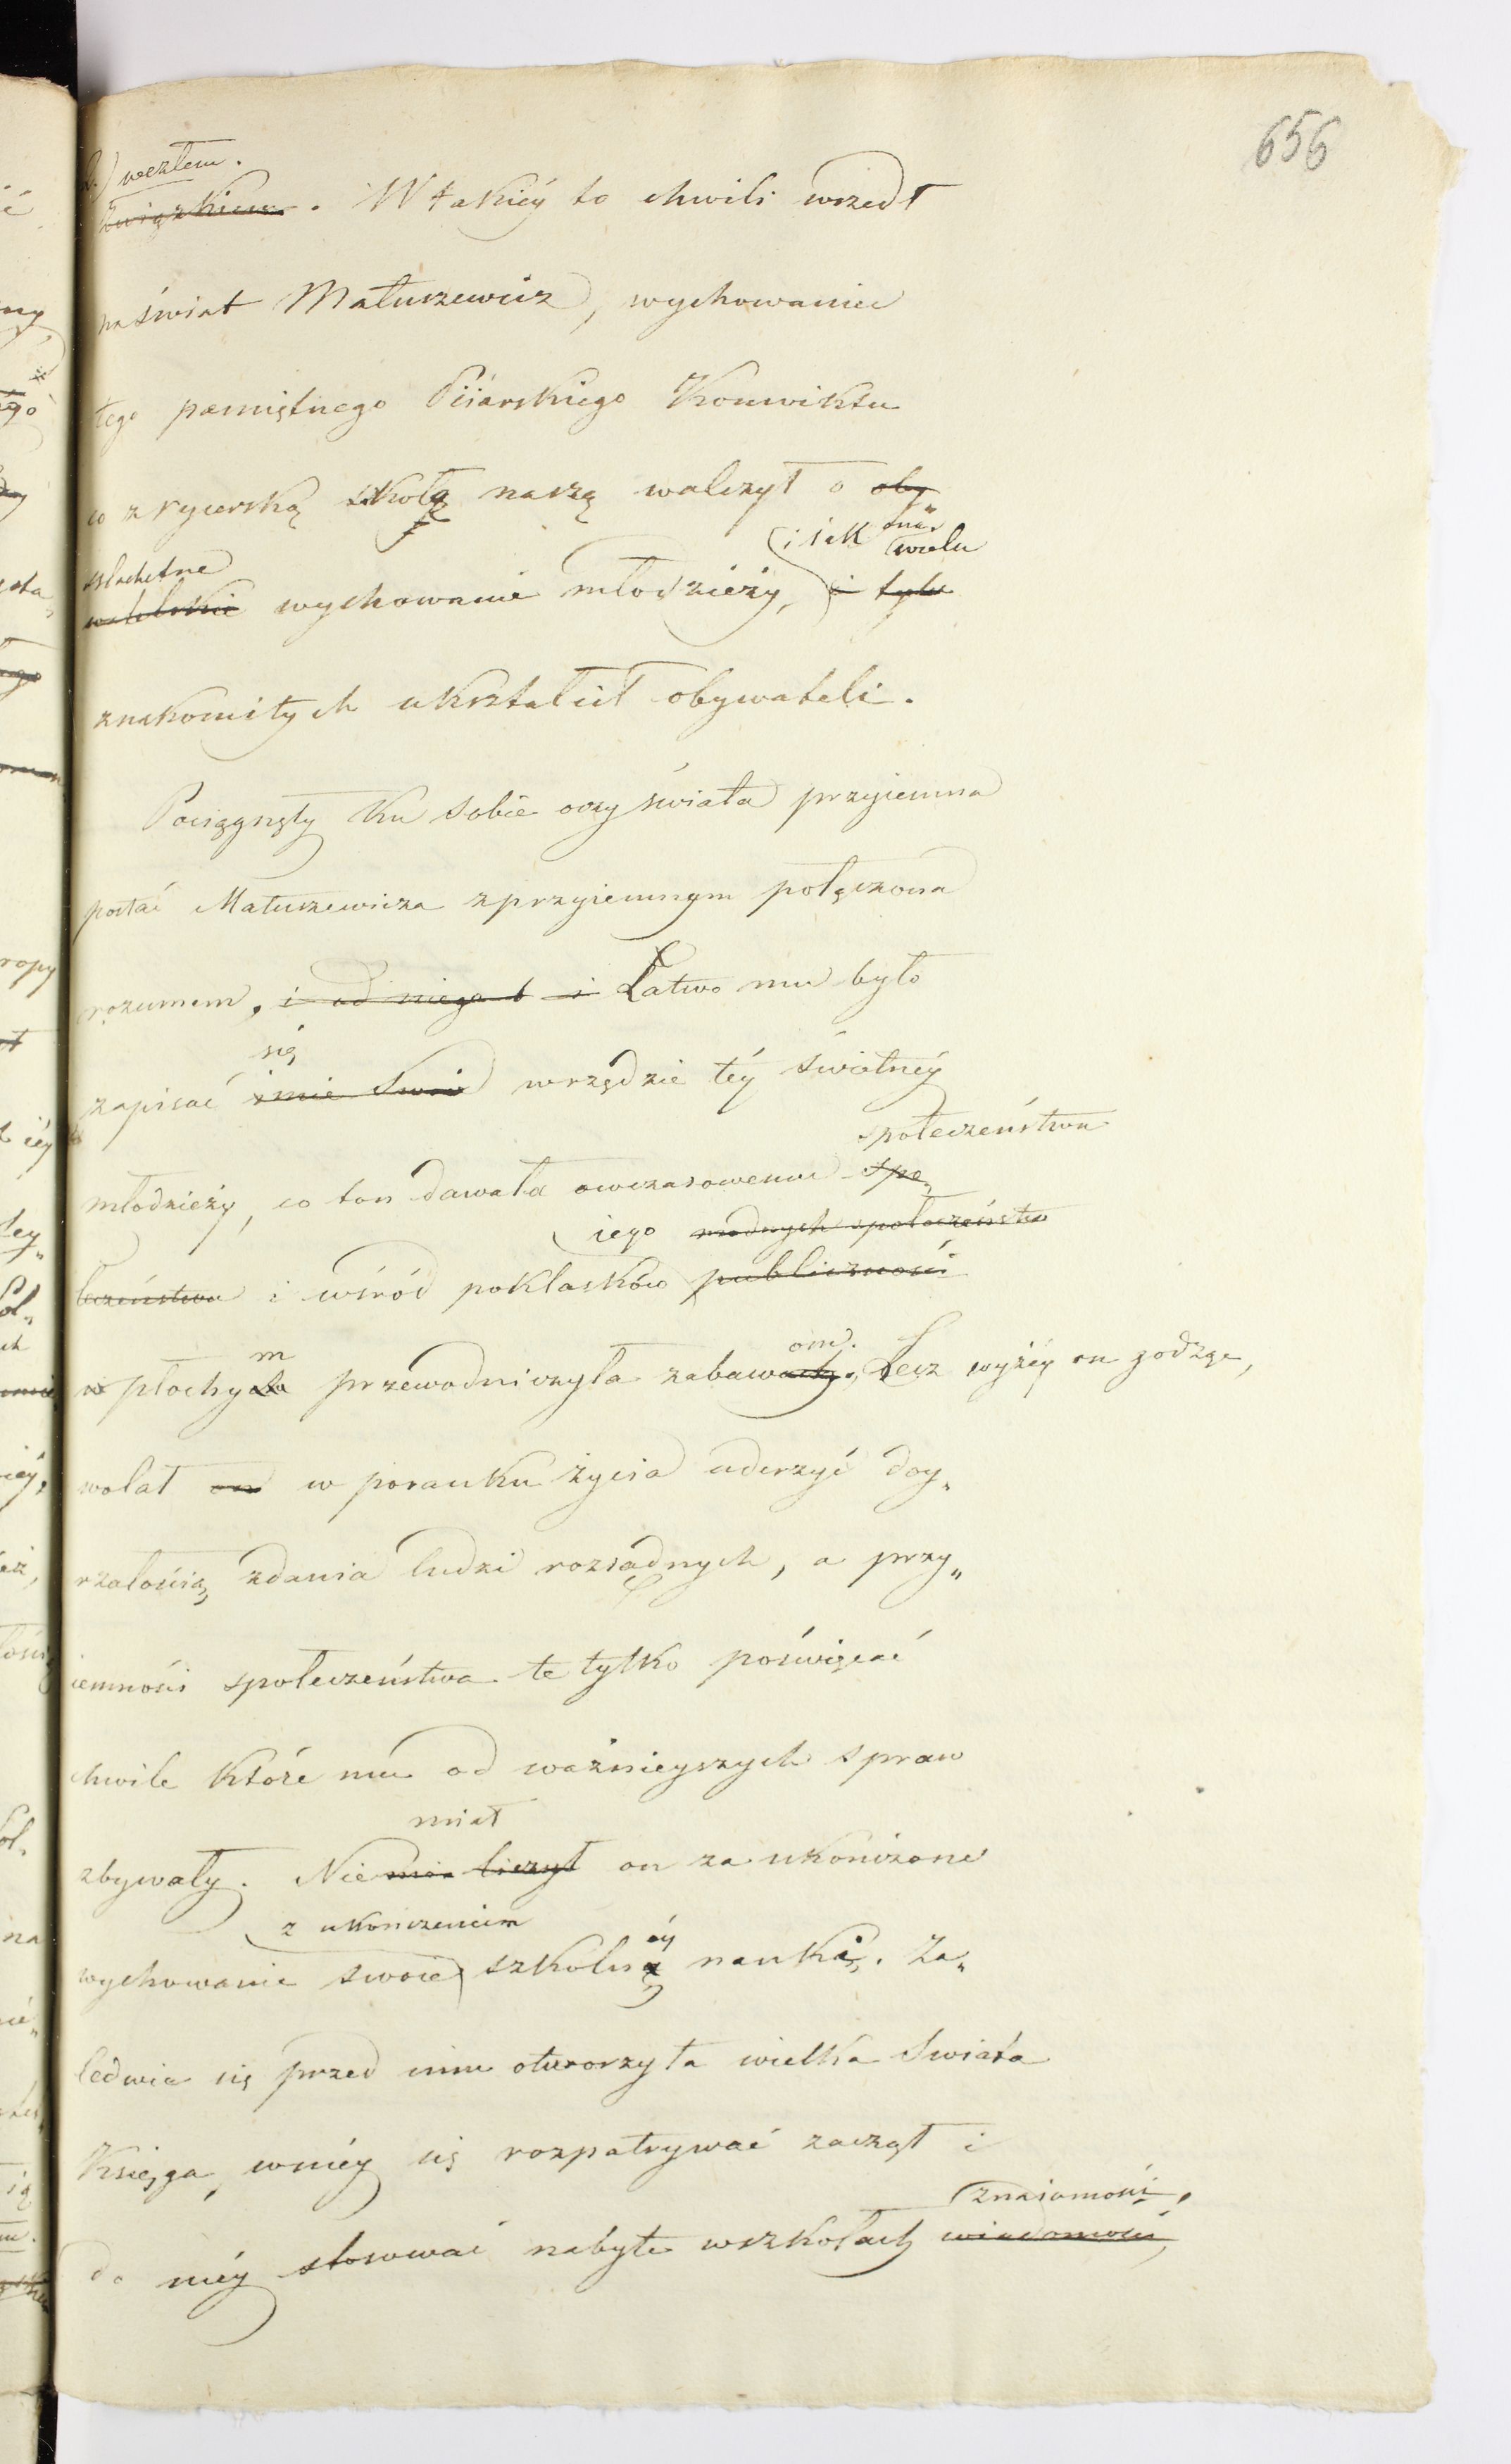 656
węzłem.
związkiem. W takiéy to chwili wszedł
na świat Matuszewicz, wychowaniec
tego pamiętnego Piiarskiego Konwiktu
co z rycerską szkołą naszą walczył o oby
i jak
wielu
szlachetne
watelskie wychowanie młodzieży, i tylu
znakomitych ukształcił obywateli.
Pociągnęły ku sobie oczy świata przyiemna
postać Matuszewicza z przyiemnym połączona
rozumem, i od niego b i Łatwo mu było
się
zapisać imie Swoie w rzędzie téy świetnéy
społeczeństwu
młodzieży, co ton dawała owczasowemu spo„
iego modnych społeczeństw
łeczeństwu i wśród poklasków publiczności
m om.
w płochych przewodniczyła zabawach, Lecz wyżéy on godząc,
wolał on w poranku życia uderzyć doy„
rzałością zdania ludzi rozsądnych, a przy„
iemności społeczeństwa te tylko poświęcać
chwile które mu od ważnieyszych spraw
miał
zbywały. Nie mia liczył on za ukończone
z ukończeniem
éy
wychowanie swoie szkolną nauką. Za„
ledwie się przed nim otworzyła wielka Swiata
Księga, w niéy się rozpatrywać zaczął i
znaiomości,
do niéy stosować nabyte w szkołach wiadomości,